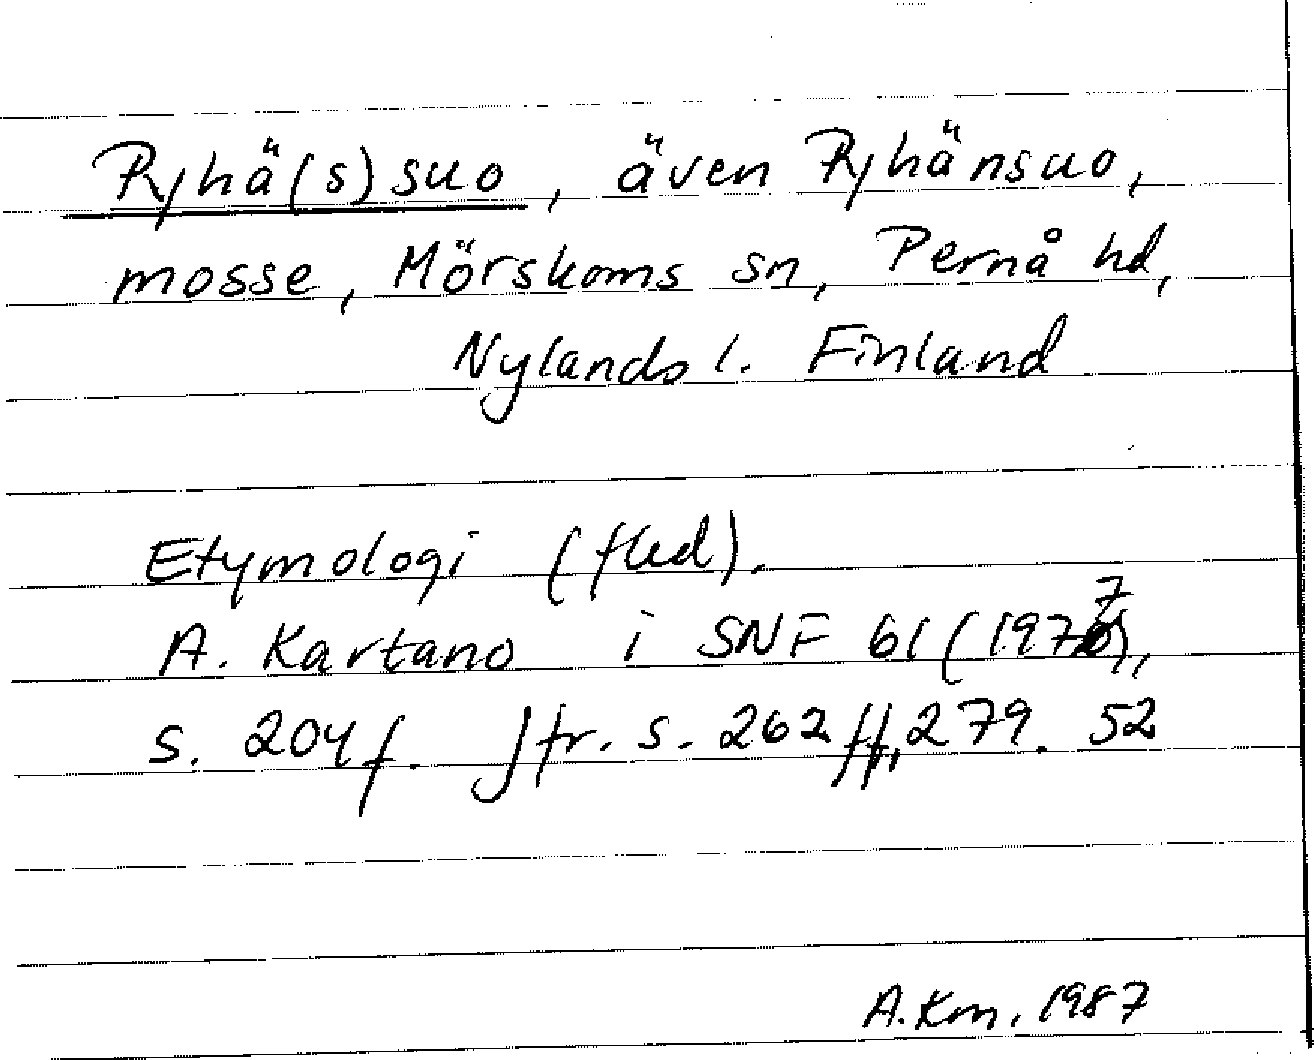 Pyhä(s)suo, även Pyhänsuo,
mosse, Mörskoms sn, Pernå hd,
Nylands l. Finland
Etymologi (fled).
A. Kartano i SNF 61 (1977),
s. 204 f. Jfr. s. 262 ff, 279. 52
A. Km. 1987